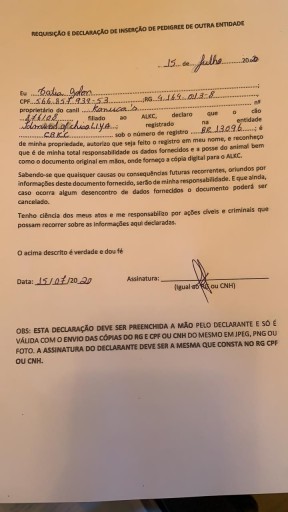 REQUISIÇÃO E DECLARAÇÃO DE INSERÇÃO DE PEDIGREE DE OUTRA ENTIDADE
15 de Julho 2020
Eu
CPF 566.357.939-53 ;RG 4.164.013-8 ;
proprietário do canil Karuca's nº
876/08 filiado ao ALKC, declaro que o cão
registrado na entidade
CBKC sob o número de registro BR 13096 ; é
de minha propriedade, autorizo que seja feito o registro em meu nome, e reconheço
que é de minha total responsabilidade os dados fornecidos e a posse do animal bem
como o documento original em mãos, onde forneço a cópia digital para o ALKC.
Sabendo-se que quaisquer causas ou consequências futuras recorrentes, oriundos por
informações deste documento fornecido, serão de minha responsabilidade. E que ainda,
caso ocorra algum desencontro de dados fornecidos o documento poderá ser
cancelado.
Tenho ciência dos meus atos e me responsabilizo por ações cíveis e criminais que
possam recorrer sobre as informações aqui declaradas.
O acima descrito é verdade e dou fé
Data: 15/07/2020 Assinatura:
(Igual ao RG ou CNH)
OBS: ESTA DECLARAÇÃO DEVE SER PREENCHIDA A MÃO PELO DECLARANTE E SÓ É
VÁLIDA COM O ENVIO DAS CÓPIAS DO RG E CPF OU CNH DO MESMO EM JPEG, PNG OU
FOTO. A ASSINATURA DO DECLARANTE DEVE SER A MESMA QUE CONSTA NO RG CPF
OU CNH.